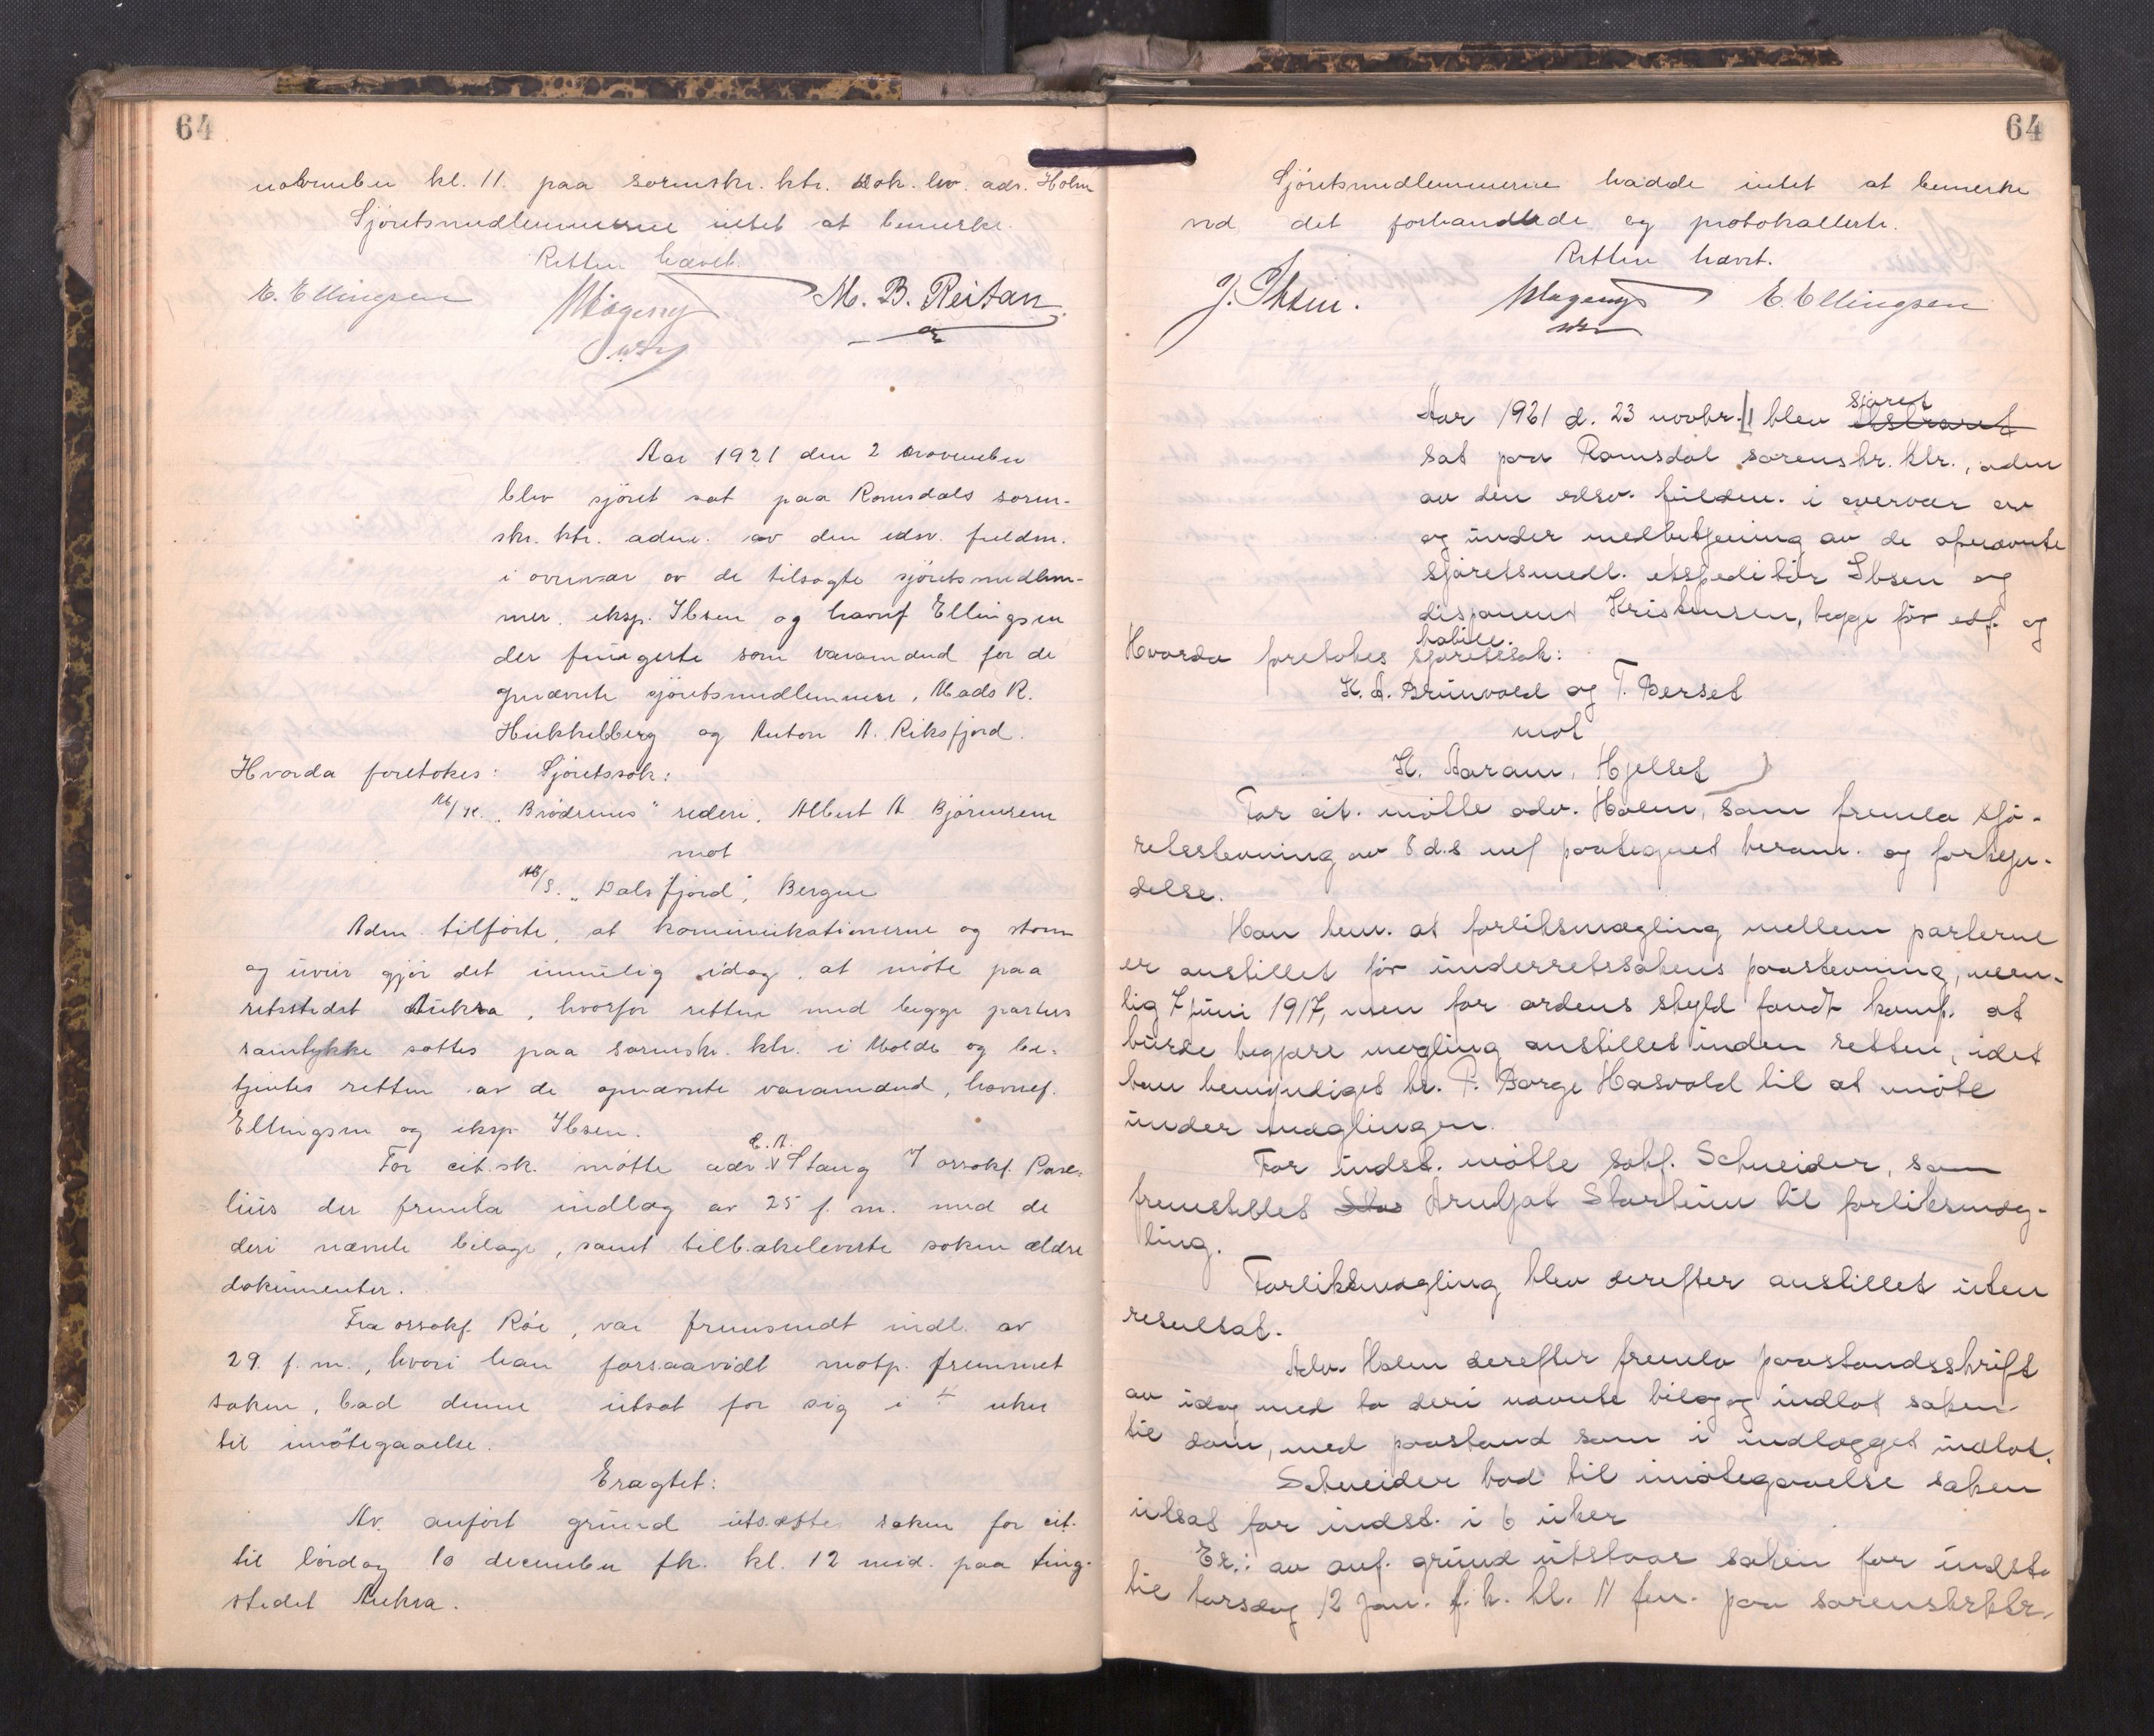 64
november kl. 11. paa sorenskr. ktr. Dok. lev. adv. Holm
Sjøretsmedlemmerne intet at bemerke.
Retten hævet.
E. Ellingsen M. B. Reitan
Aar 1921 den 2 november
blev sjøret sat paa Romsdals soren-
skr. ktr. adm. av den edsv. fuldm.
i overvær av de tilsagte sjøretsmedlem-
mer, eksp. Ibsen og havnf Ellingsen
der fungerte som varamænd for de
opnævnte sjøretsmedlemmer, Mads R.
Hukkelberg og Anton A. Riksfjord.
Hvorda foretokes: Sjøretssak:
M/K. "Brødrenes" rederi, Albert A Bjørnerem
mot
M/S. "Dalsfjord", Bergen
Adm. tilførte, at kommunikationerne og storm
og uveir gjør det umulig idag, at møte paa
retsstedet Aukra, hvorfor retten med begge parters
samtykke sattes paa sorenskr. ktr. i Molde og be-
tjentes retten av de opnævnte varamænd, havnef.
Ellingsen og eksp. Ibsen.
For cit. sk. møtte adv. C. A. Stang v/ orsakf. Pare-
lius der fremla indlæg av 25 f. m. med de
deri nævnte bilage, samt tilbakeleverte saken ældre
dokumenter.
Fra orsakf. Röe, var fremsendt indl. av
29. f. m., hvori han forsaavidt motp. fremmet
saken, bad denne utsat for sig i 4 uker
til imøtegaaelse.
Eragtet:
Av. anført grund utsættes saken for cit.
til lørdag 10 december fk. kl. 12 mid. paa ting-
stedet Aukra.
64
Sjøretsmedlemmerne hadde intet at bemerke
ved det forhandlede og protokollerte.
Retten hævet.
J. Ibsen. E. Ellingsen
Aar 1921 d. 23 novbr. blev sjøret ekstraret
sat paa Romsdal sorenskr. ktr., adm
av den edsv. fuldm. i overvær av
og under medbetjening av de opnævnte
sjøretsmedl. ekspeditør Ibsen og
disponent Kristensen, begge før edf. og
habile.
Hvorda foretokes sjøretssak:
K. A. Grünvold og T. Berset
mot
K. Aaram, Hjellet
For cit. møtte adv. Holm, som fremla sjø-
retsstevning av 8 d.s. paategnet beram. og forkyn-
delse.
Han bem. at forliksmægling mellem parterne
er anstillet før underretssakens paastevning, nem-
lig 7 juni 1917, men for ordens skyld fandt komp. at
burde begjære megling anstillet inden retten, idet
han bemyndiget hr. P. Borge Hasvold til at møte
under mæglingen.
For indst. møtte sakf. Schneider, som
fremstillet Stor Arnljot Storheim til forliksmæg-
ling.
Forliksmægling blev derefter anstillet uten
resultat.
Adv. Holm derefter fremla paastandsskrift
av idag med to deri nævnte bilag og indlot saken
til dom, med paastand som i indlægget indlot.
Schneider bad til imøtegaaelse saken
utsat for indst. i 6 uker
Er.: av anf. grund utstaar saken for indst.
til torsdag 12 jan. f. k. kl. 11 fm. paa sorenskrktr.